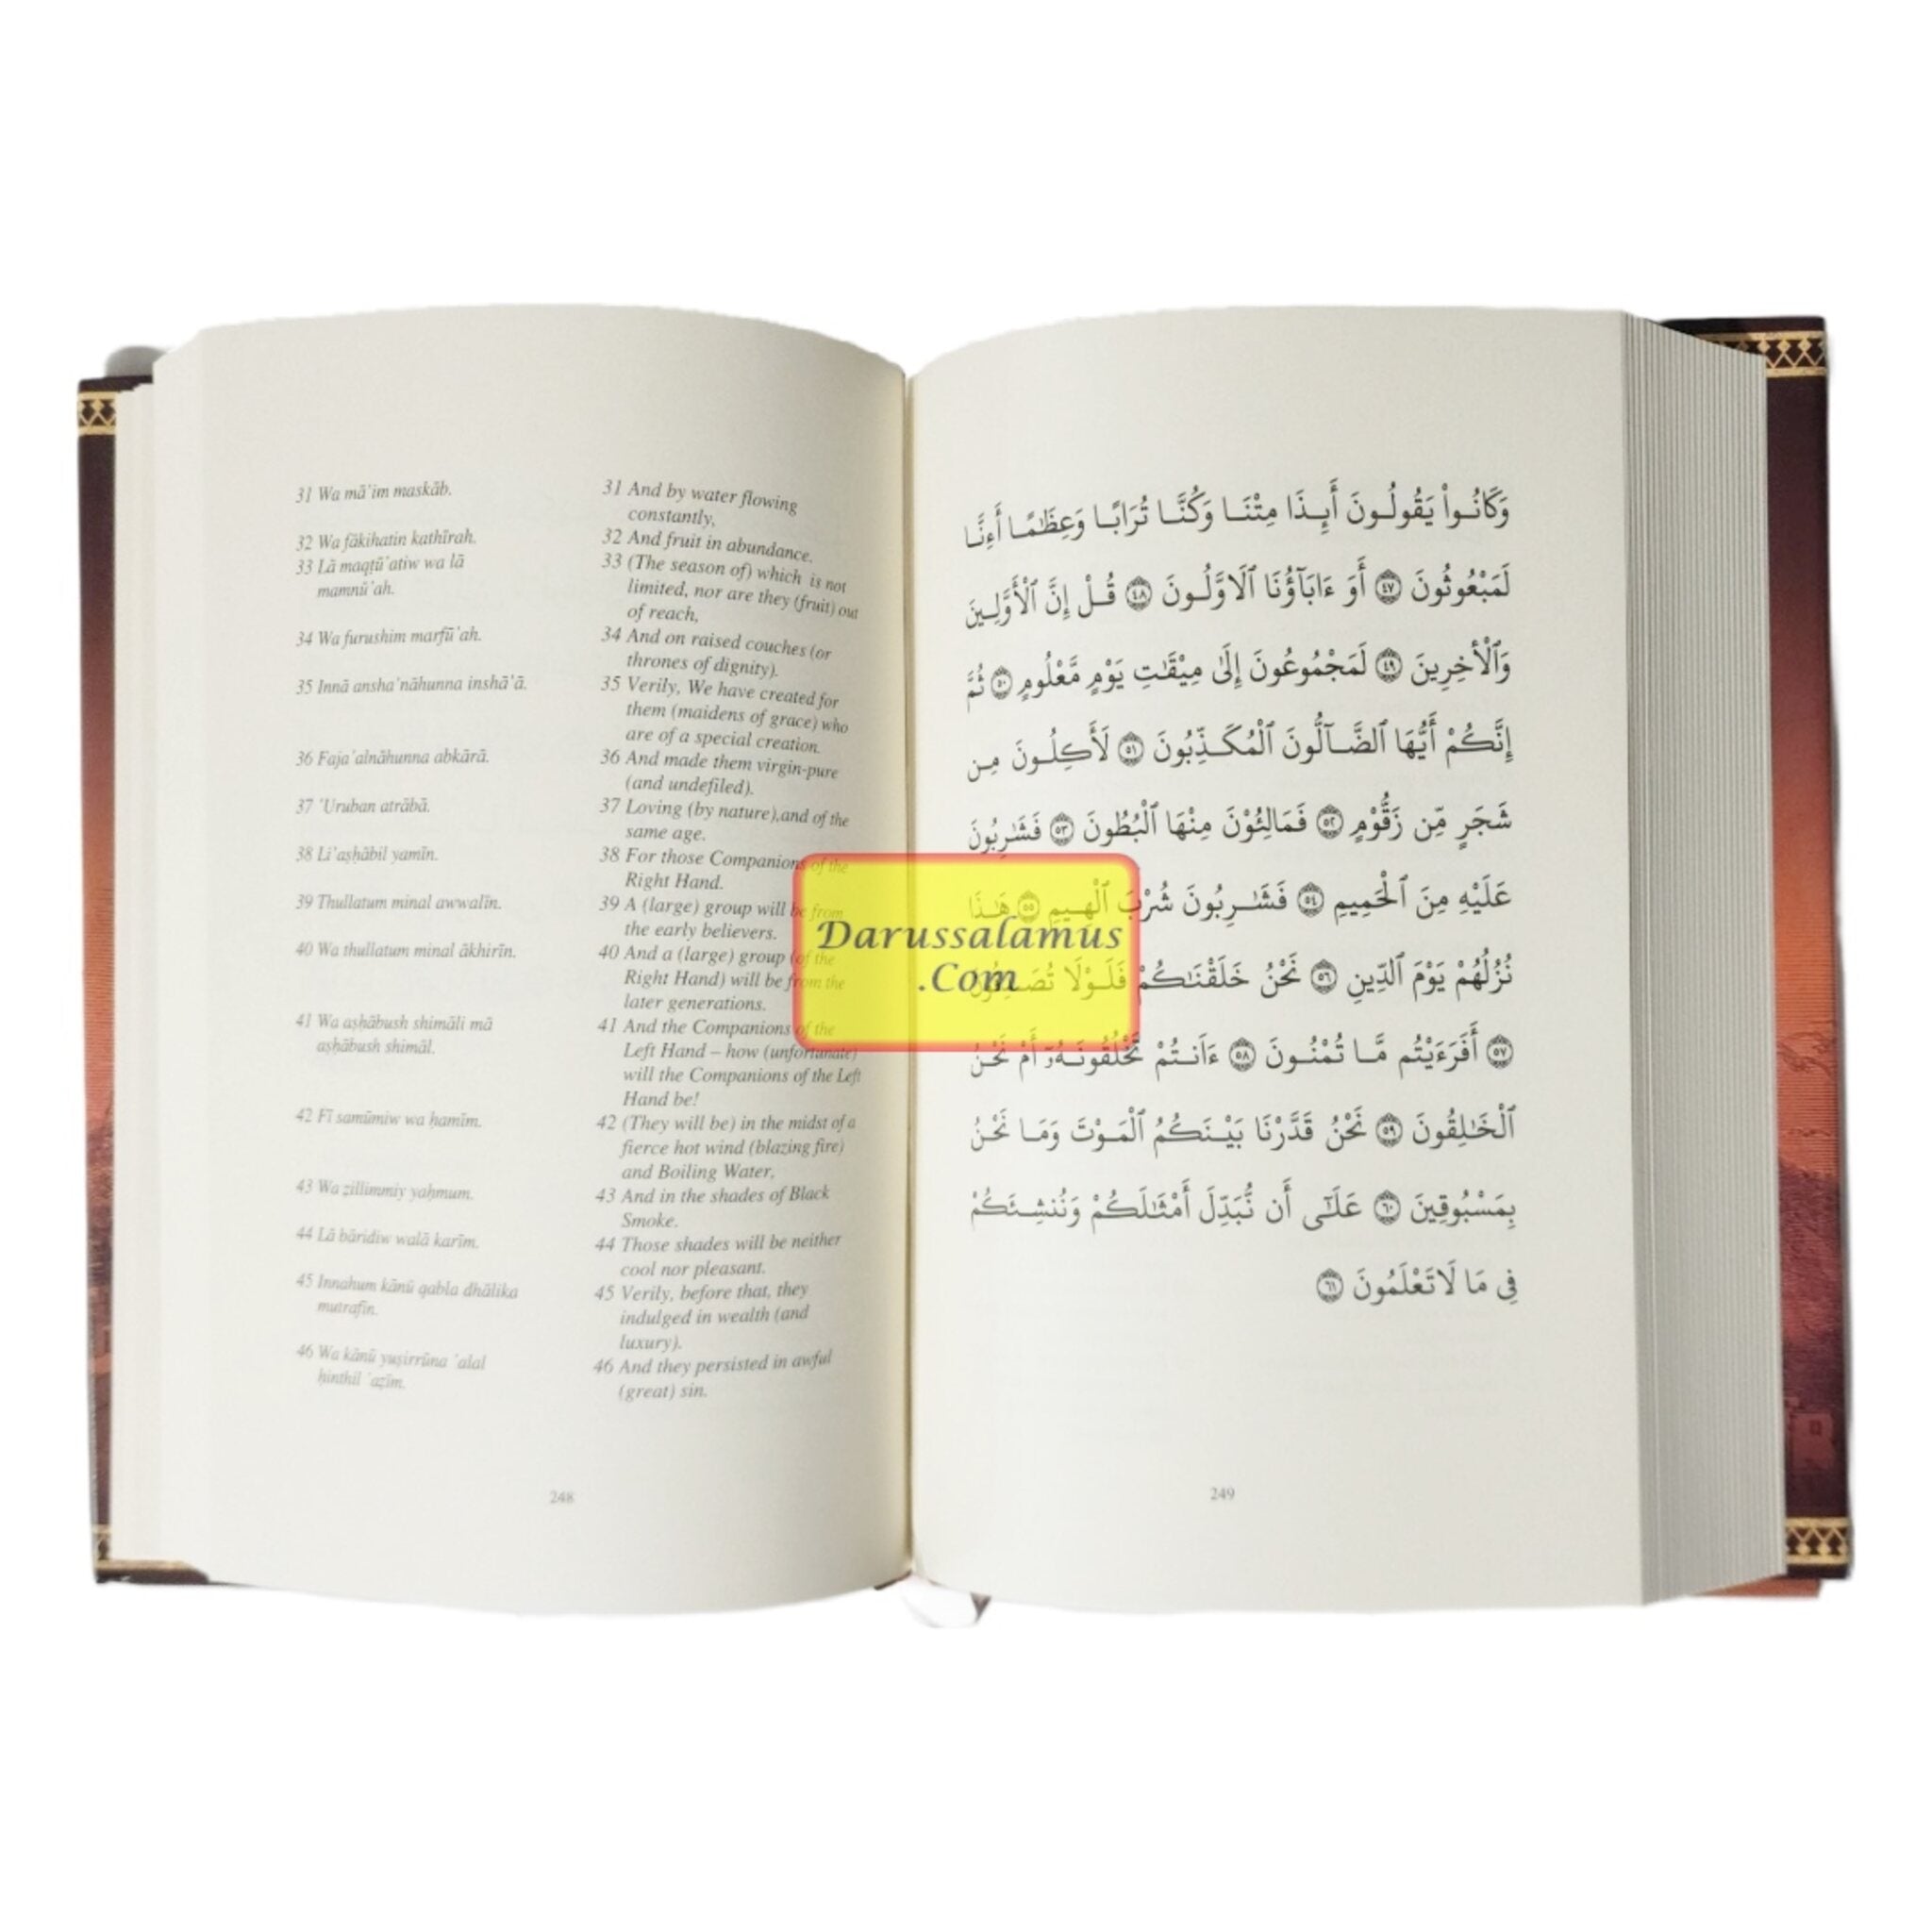 31 Wa mā'im maskāb.
32 Wa fākihatin kathīrah.
33 Lā maqṭū'atiw wa lā
mamnū'ah.
34 Wa furushim marfū'ah.
35 Innā ansha'nāhunna inshā'ā.
36 Faja'alnāhunna abkārā.
37 'Uruban atrābā.
38 Li'aṣḥābil yamīn.
39 Thullatum minal awwalīn.
40 Wa thullatum minal ākhirīn.
41 Wa aṣḥābush shimāli mā
aṣḥābush shimāl.
42 Fī samūmiw wa ḥamīm.
43 Wa ẓillimmiy yaḥmum.
44 Lā bāridiw walā karīm.
45 Innahum kānū qabla dhālika
mutrafīn.
46 Wa kānū yuṣirrūna 'alal
ḥinthil 'aẓīm.
31 And by water flowing
constantly,
32 And fruit in abundance.
33 (The season of) which is not
limited, nor are they (fruit) out
of reach,
34 And on raised couches (or
thrones of dignity).
35 Verily, We have created for
them (maidens of grace) who
are of a special creation.
36 And made them virgin-pure
(and undefiled).
37 Loving (by nature),and of the
same age.
38 For those Companions of the
Right Hand.
39 A (large) group will be from
the early believers.
40 And a (large) group (of the
Right Hand) will be from the
later generations.
41 And the Companions of the
Left Hand – how (unfortunate)
will the Companions of the Left
Hand be!
42 (They will be) in the midst of a
fierce hot wind (blazing fire)
and Boiling Water,
43 And in the shades of Black
Smoke.
44 Those shades will be neither
cool nor pleasant.
45 Verily, before that, they
indulged in wealth (and
luxury).
46 And they persisted in awful
(great) sin.
248
وَكَانُوا۟ يَقُولُونَ أَئِذَا مِتْنَا وَكُنَّا تُرَابًا وَعِظَٰمًا أَءِنَّا
لَمَبْعُوثُونَ ٤٧ أَوَ ءَابَآؤُنَا ٱلْأَوَّلُونَ ٤٨ قُلْ إِنَّ ٱلْأَوَّلِينَ
وَٱلْأَخِرِينَ ٤٩ لَمَجْمُوعُونَ إِلَىٰ مِيقَٰتِ يَوْمٍ مَّعْلُومٍ ٥٠ ثُمَّ
إِنَّكُمْ أَيُّهَا ٱلضَّآلُّونَ ٱلْمُكَذِّبُونَ ٥١ لَأَكِلُونَ مِن
شَجَرٍ مِّن زَقُّومٍ ٥٢ فَمَالِئُونَ مِنْهَا ٱلْبُطُونَ ٥٣ فَشَٰرِبُونَ
عَلَيْهِ مِنَ ٱلْحَمِيمِ ٥٤ فَشَٰرِبُونَ شُرْبَ ٱلْهِيمِ ٥٥ هَٰذَا
نُزُلُهُمْ يَوْمَ ٱلدِّينِ ٥٦ نَحْنُ خَلَقْنَٰكُمْ فَلَوْلَا تُصَدِّقُونَ
٥٧ أَفَرَءَيْتُم مَّا تُمْنُونَ ٥٨ ءَأَنتُمْ تَخْلُقُونَهُۥٓ أَمْ نَحْنُ
ٱلْخَٰلِقُونَ ٥٩ نَحْنُ قَدَّرْنَا بَيْنَكُمُ ٱلْمَوْتَ وَمَا نَحْنُ
بِمَسْبُوقِينَ ٦٠ عَلَىٰٓ أَن نُّبَدِّلَ أَمْثَٰلَكُمْ وَنُنشِئَكُمْ
فِى مَا لَا تَعْلَمُونَ ٦١
249
Darussalamus
.Com